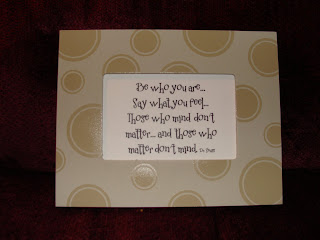 Be who you are...
Say what you feel...
Those who mind don't
matter... and those who
matter don't mind. Dr. Seuss